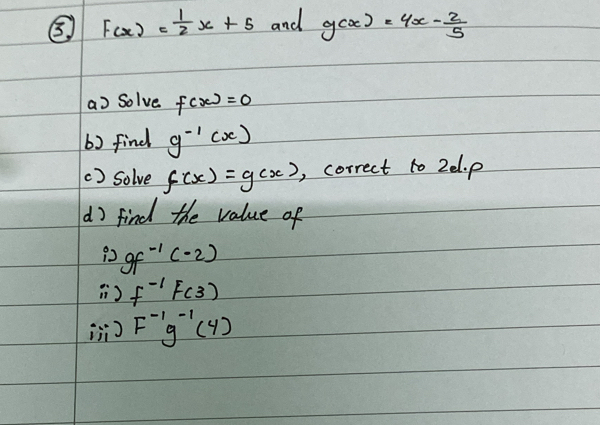 ③. F(x) = 1/2 x + 5 and g(x) = 4x - 2/5
a) Solve f(x) = 0
b) find g⁻¹(x)
c) Solve f(x) = g(x), correct to 2d.p
d) find the value of
i) gf⁻¹(-2)
ii) f⁻¹F(3)
iii) F⁻¹g⁻¹(4)